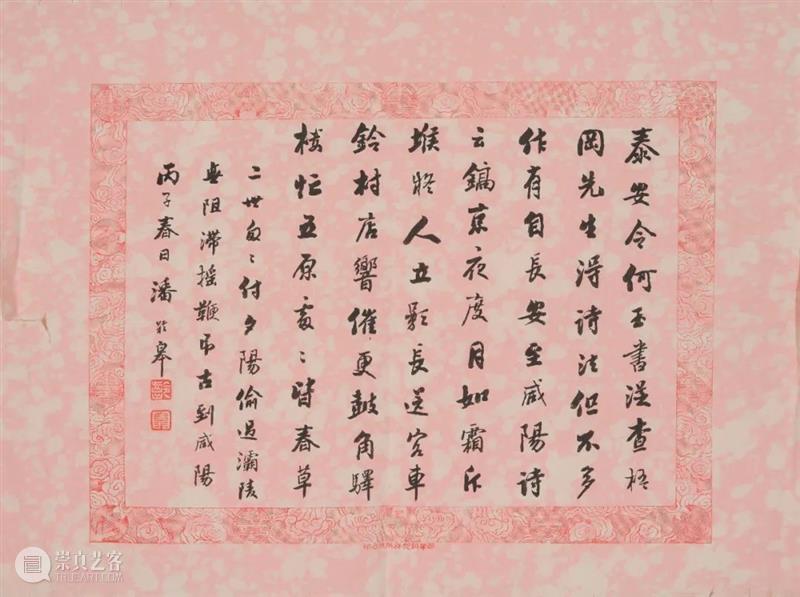 泰安令何玉書從查梧
岡先生得詩法但不多
作有自長安至咸陽詩
云鎬京夜度月如霜斥
堠將人立影長送客車
鈴村店響催更鼓角驛
樓忙五原處〻皆春草
二世匆〻付夕陽偷過灞陵
無阻滯搖鞭弔古到咸陽
丙子春日潘齡皋
崇真艺客